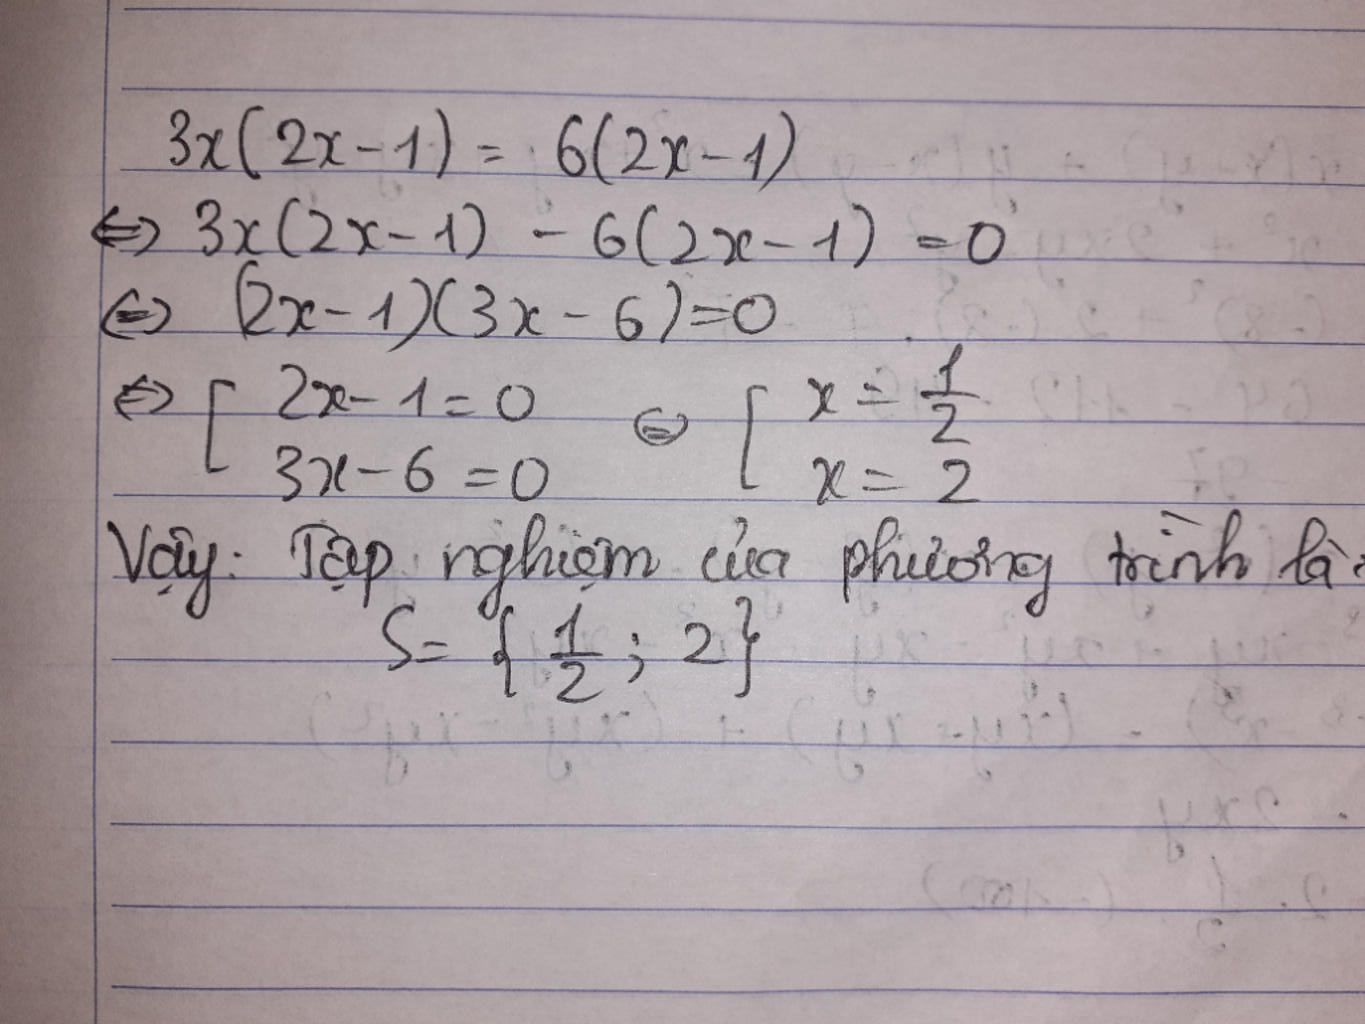 3x(2x-1) = 6(2x-1)
⇔ 3x(2x-1) - 6(2x-1) = 0
⇔ (2x-1)(3x-6)=0
⇔ [ 2x-1=0 ⇔ [ x = 1/2
3x-6=0 x = 2
Vậy: Tập nghiệm của phương trình là:
S= { 1/2 ; 2}